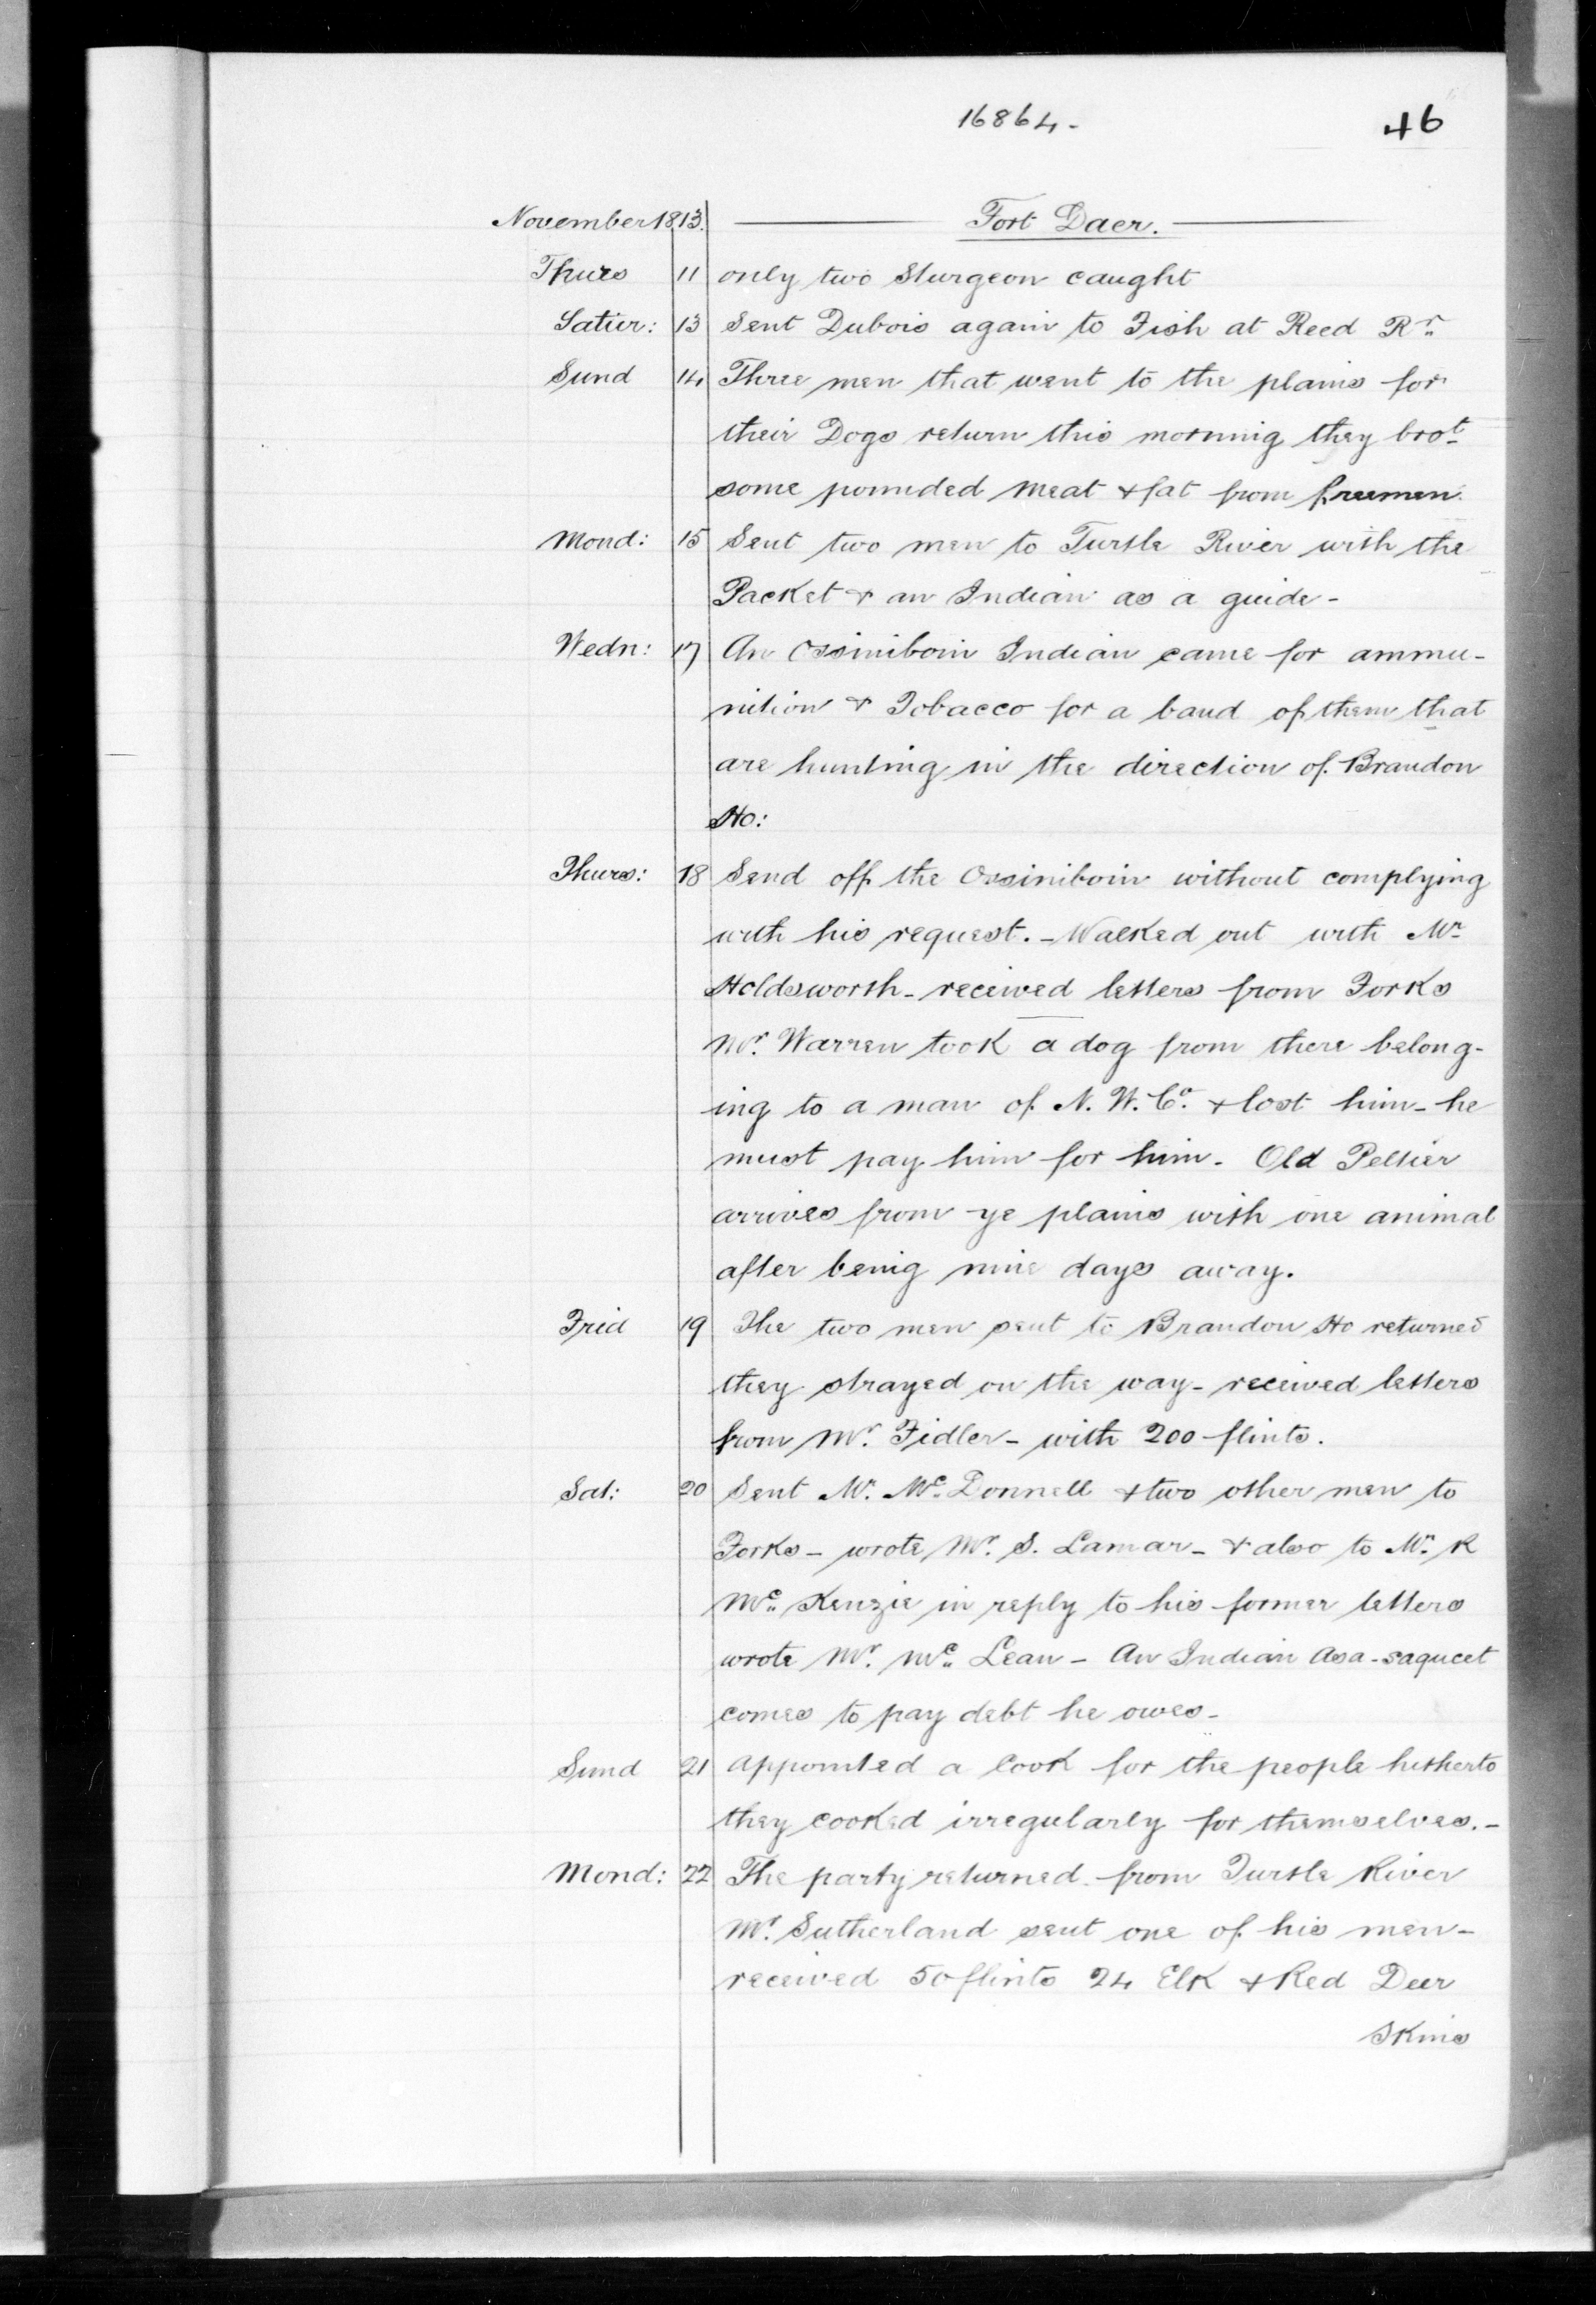 16864-
46
November 1813. Fort Daer.
Thurs 11 only two Sturgeon caught
Satur: 13 Sent Dubois again to Fish at Reed Rr.
Sund 14 Three men that went to the plains for
their Dogs return this morning they brot
some pounded meat & fat from freemen.
Mond: 15 Sent two men to Turtle River with the
Packet & an Indian as a guide -
Wedn: 17 An Ossiniboin Indian came for ammu-
nition & Tobacco for a band of them that
are hunting in the direction of Brandon
Ho:
Thurs: 18 Send off the Ossiniboin without complying
with his request. - Walked out with Mr
Holdsworth - received letters from Forks
Mr. Warren took a dog from there belong-
ing to a man of N. W. Co. & lost him - he
must pay him for him. Old Peltier
arrives from ye plains with one animal
after being nine days away.
Frid 19 The two men sent to Brandon Ho returned
they strayed on the way - received letters
from Mr. Fidler - with 200 flints.
Sat: 20 Sent Mr. Mc. Donnell & two other men to
Forks - wrote Mr. S. Lamar - & also to Mr. R
Mc. Kenzie in reply to his former letters
wrote Mr. Mc. Lean - An Indian Asa-saqucet
comes to pay debt he owes -
Sund 21 appointed a Cook for the people hitherto
they cooked irregularly for themselves. -
Mond: 22 The party returned from Turtle River
Mr. Sutherland sent one of his men -
received 50 flints 24 Elk & Red Deer
Skins